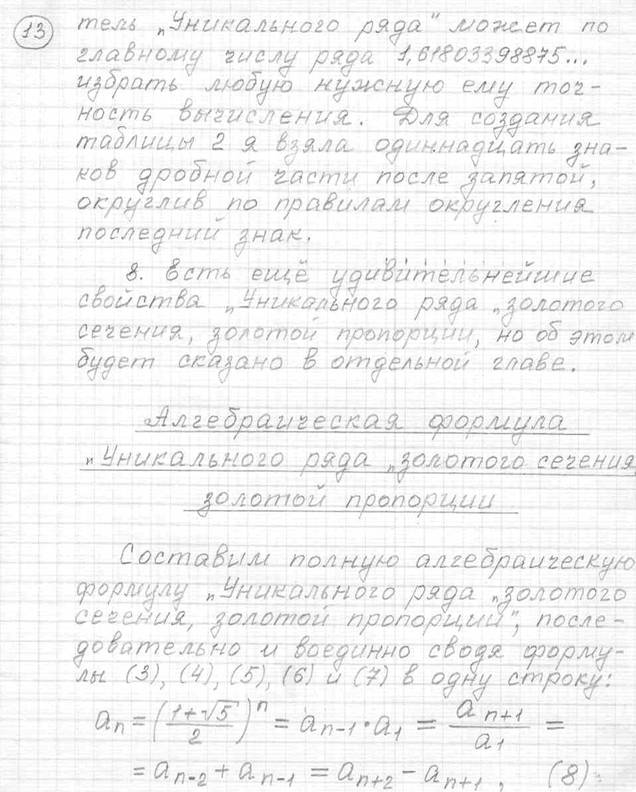 13
тель „Уникального ряда" может по
главному числу ряда 1,61803398875...
избрать любую нужную ему точ-
ность вычисления. Для создания
таблицы 2 я взяла одиннадцать зна-
ков дробной части после запятой,
округлив по правилам округления
последний знак.
8. Есть ещё удивительнейшие
свойства „Уникального ряда „золотого
сечения, золотой пропорции, но об этом
будет сказано в отдельной главе.
Алгебраическая формула
„Уникального ряда „золотого сечения,
золотой пропорции
Составим полную алгебраическую
формулу „Уникального ряда „золотого
сечения, золотой пропорции", после-
довательно и воедино сводя форму-
лы (3), (4), (5), (6) и (7) в одну строку:
aₙ = ((1+√5)/2)ⁿ = aₙ₋₁·a₁ = aₙ₊₁/a₁ =
= aₙ₋₂ + aₙ₋₁ = aₙ₊₂ − aₙ₊₁, (8)